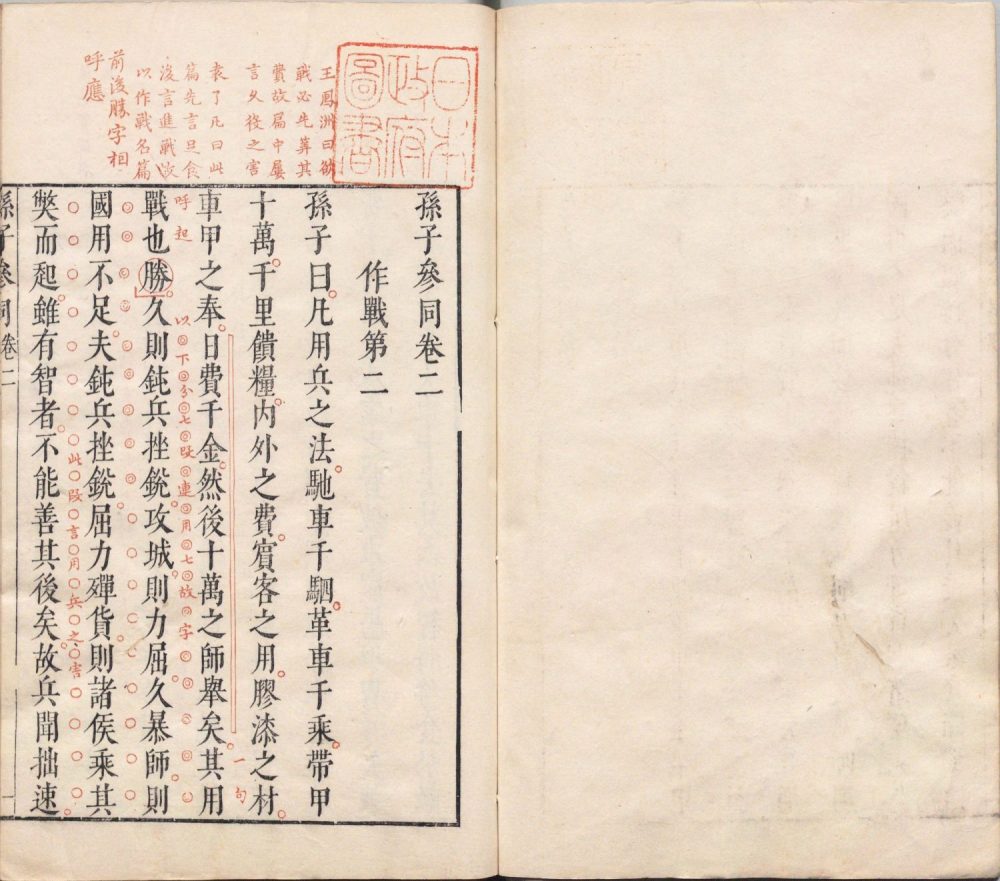 日本
政府
圖書
王鳳洲曰欲
戰必先筭其
費故篇中屢
言久役之害
袁了凡曰此
篇先言足食
後言進戰故
以作戰名篇
前後勝字相
呼應
孫子參同卷二
作戰第二
孫子曰凡用兵之法馳車千駟革車千乘帶甲
十萬千里饋糧內外之費賓客之用膠漆之材
一句
車甲之奉日費千金然後十萬之師舉矣其用
呼起
以下分七段連用七故字
戰也勝久則鈍兵挫銳攻城則力屈久暴師則
國用不足夫鈍兵挫銳屈力殫貨則諸侯乘其
此段言用兵之害
獘而起雖有智者不能善其後矣故兵聞拙速
孫子參同卷二
一